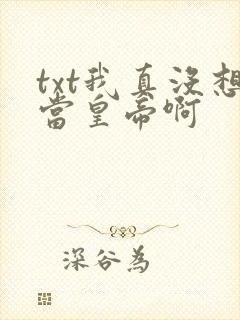 txt我真没想
當皇帝啊
深谷為